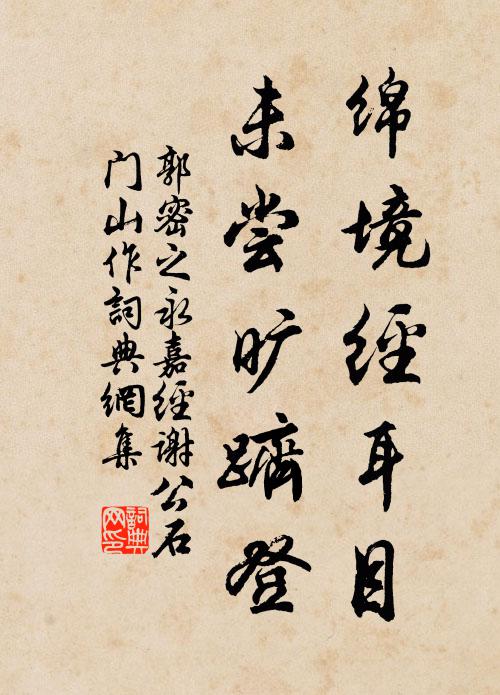 绵境經耳目
未尝旷躋登
郭密之永嘉經谢公石
门山作詞典網集
詞典
网印